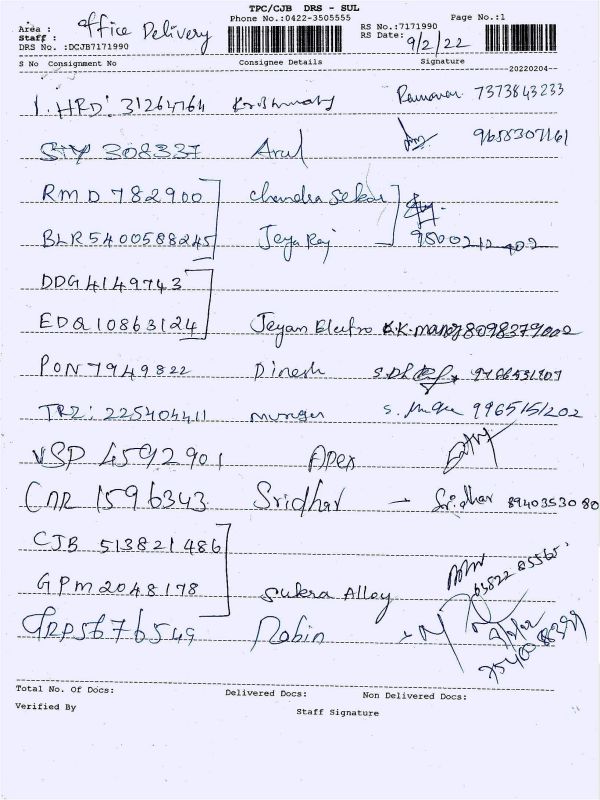 TPC/CJB DRS - SUL
Area : office Delivery Phone No.:0422-3505555 RS No.:7171990 Page No.:1
Staff : RS Date: 9/2/22
DRS No. :DCJB7171990
S No Consignment No Consignee Details Signature
20220204
1. HRD: 31264764 7373843233
308337 Arul 9658307161
RMD 782900 chandra Sekar
BLR5400588245 Jeya Raj
DDG4149743
EDQ10863124 Jeyam Electro
PON 7949822 Dinesh
TRZ: 225404411 murugan 9965151202
VSP 4592901 Apex
CNR 1596343 Sridhar - Sridhar 8940353080
CJB 513821486
GPM2048178 Sukra Alloy
5676549 Robin
Total No. Of Docs: Delivered Docs: Non Delivered Docs:
Verified By Staff Signature